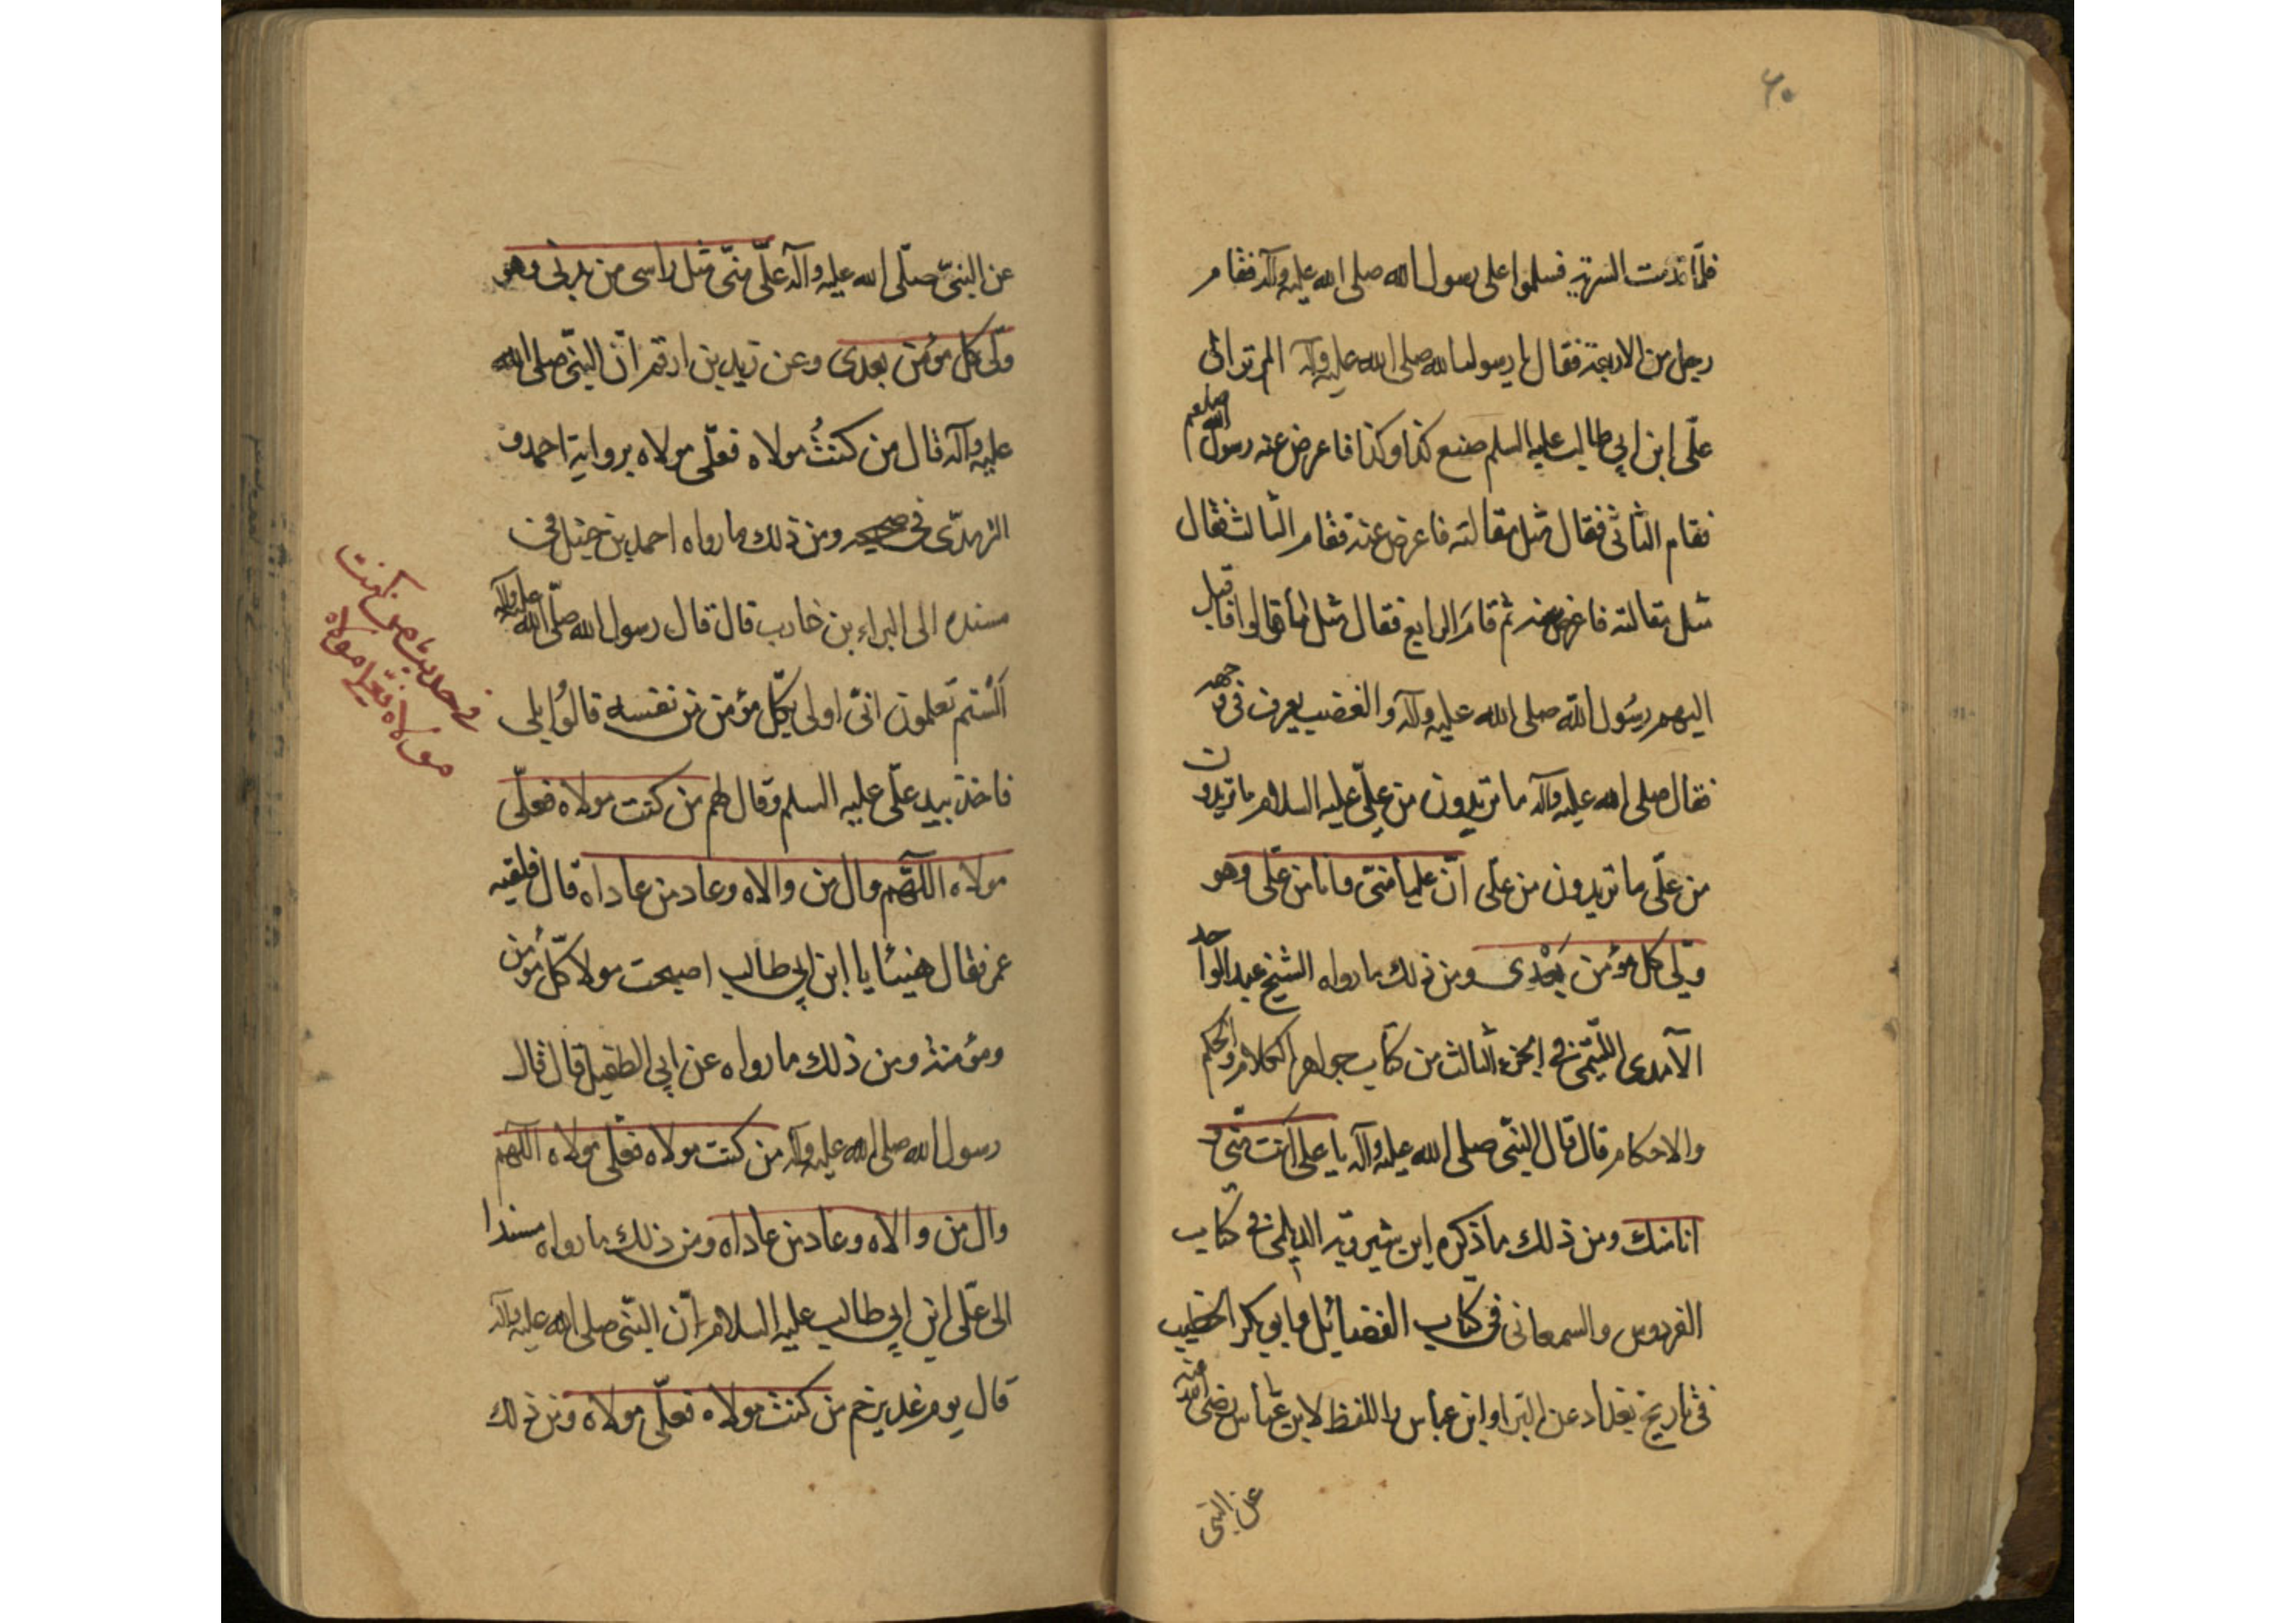 ٦٠
فلما قدمت السرية فسلموا على رسول الله صلى الله عليه وآله فقام
رجل من الاربعة فقال يا رسول الله صلى الله عليه وآله الم تر انّ
علّى ابن ابي طالب عليه السلم صنع كذا وكذا فاعرض عنه رسول الله صلعم
فقام الثانى فقال مثل مقالته فاعرض عنه فقام الثالث فقال
مثل مقالته فاعرض عنه ثم قام الرابع فقال مثل ما قالوا فاقبل
اليهم رسول الله صلى الله عليه وآله والغضب يعرف فى وجهه
فقال صلى الله عليه وآله ما تريدون من علّى عليه السلام ما تريدون
من علّى ما تريدون من علّى انّ عليا منّى وانا من علّى وهو
ولّى كل مؤمن بَعْدِى ومن ذلك ما رواه الشيخ عبد الواحد
الآمدى التميمى فى الجزء الثالث من كتاب جواهر الكلام والحكم
والاحكام قال قال النبّى صلى الله عليه وآله يا على انت منّى و
انا منك ومن ذلك ما ذكره ابن شيرويه الديلمى فى كتاب
الفردوس والسمعانى فى كتاب الفضائل وابو بكر الخطيب
فى تاريخ بغداد عن البرا وابن عباس واللفظ لابن عبّاس رضى الله عنه
عن النبى
عن النبىّ صلّى الله عليه وآله علّى منّى مثل راسى من بدنى وهو
ولّى كل مؤمن بعدى وعن زيد بن ارقم انّ النبّى صلى الله
عليه وآله قال من كنتُ مولاه فعلّى مولاه برواية احمد و
الترمذّى فى صحيحه ومن ذلك ما رواه احمد بن حنبل فى
مسنده الى البراء بن عازب قال قال رسول الله صلّى الله عليه وآله
ألستم تعلمون انّى اولى بكّل مؤمن من نفسه قالوُا بلى
فاخذ بيد علّى عليه السلم وقال لهم من كنت مولاه فعلّى
مولاه اللّهم وال من والاه وعاد من عاداه قال فلقيه
عمر فقال هنيئا يا ابن ابي طالب اصبحت مولا كلّ مؤمن
ومؤمنة ومن ذلك ما رواه عن ابي الطفيل قال قال
رسول الله صلى الله عليه وآله من كنت مولاه فعلّى مولاه اللّهم
وال من والاه وعاد من عاداه ومن ذلك ما رواه مسندا
الى علّى ابن ابي طالب عليه السلام انّ النبّى صلى الله عليه وآله
قال يوم غدير خم من كنت مولاه فعلّى مولاه ومن ذلك
فى حديث من كنت
مولاه فعلى مولاه